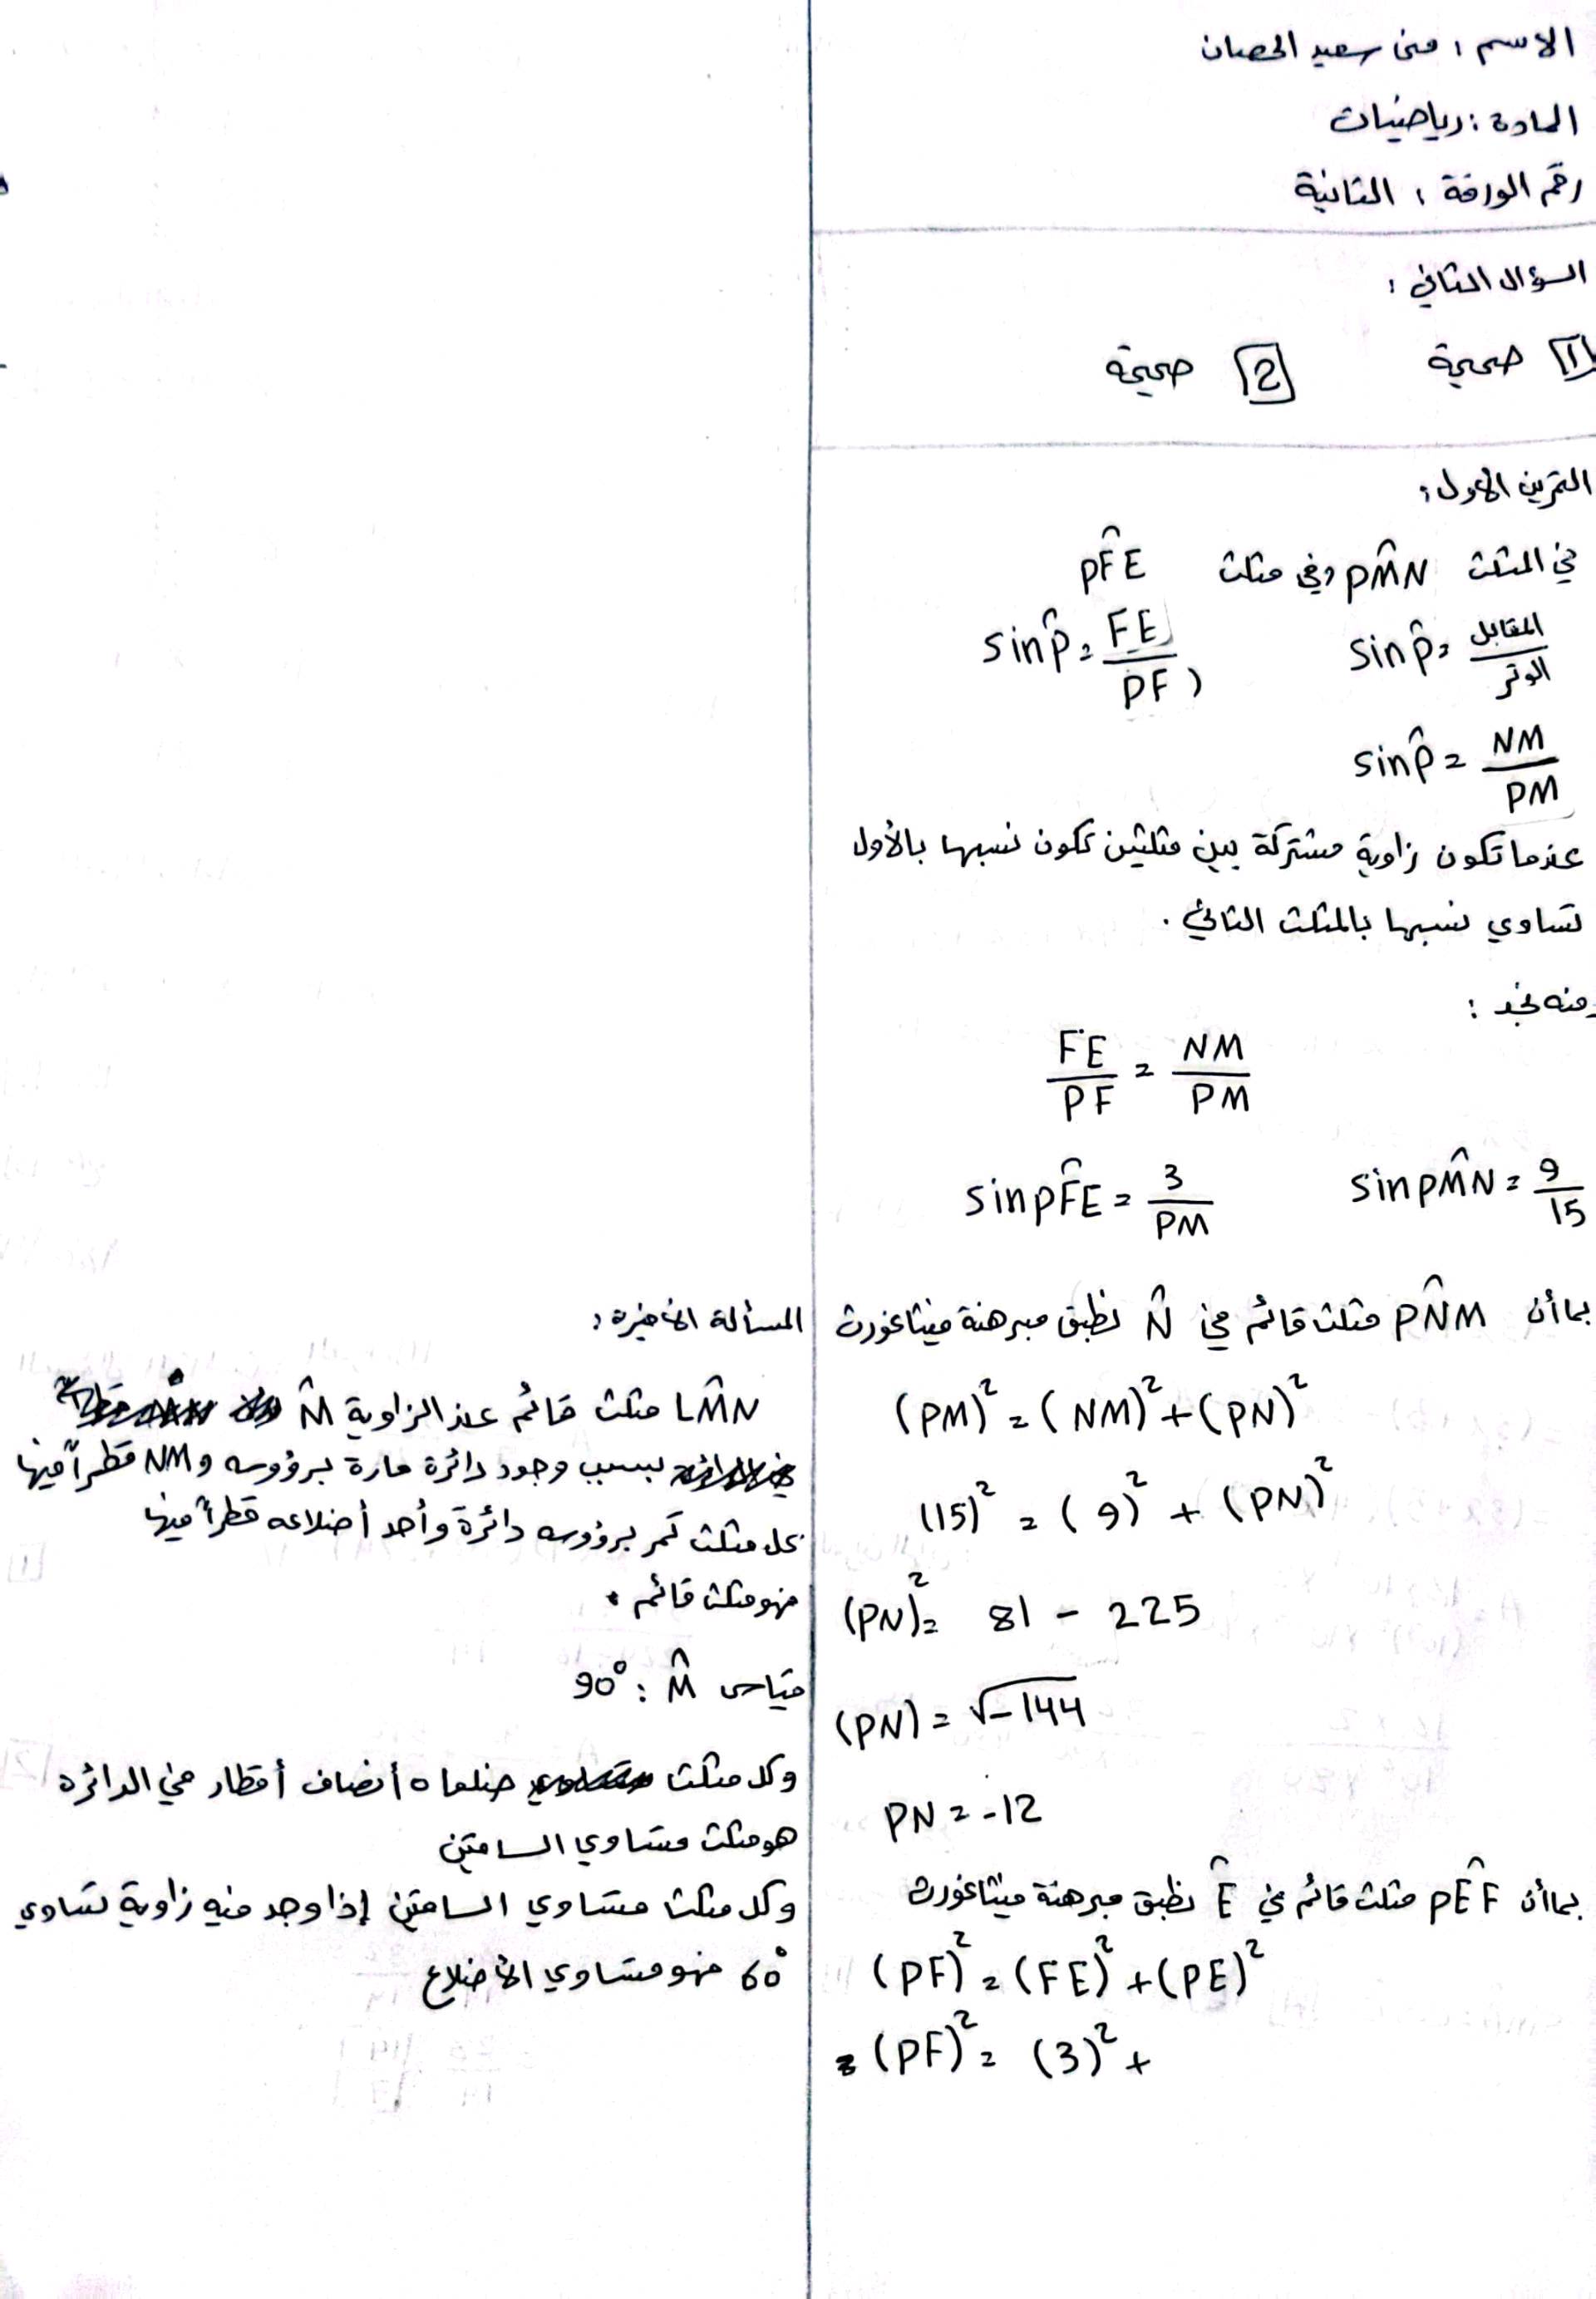 الاسم : منى سعيد الحصان
المادة : رياضيات
رقم الورقة : الثانية
السؤال الثاني :
1 صحيحة 2 صحيحة
التمرين الاول :
في المثلث PM̂N وفي مثلث PF̂E
sin P̂ = المقابل / الوتر sin P̂ = FE / PF
sin P̂ = NM / PM
عندما تكون زاوية مشتركة بين مثلثين تكون نسبها بالأول
تساوي نسبها بالمثلث الثاني .
ومنه نجد :
FE / PF = NM / PM
sin PM̂N = 9 / 15 sin PF̂E = 3 / PM
بما أن PN̂M مثلث قائم في N̂ نطبق مبرهنة فيثاغورث
(PM)² = (NM)² + (PN)²
(15)² = (9)² + (PN)²
(PN)² = 81 - 225
(PN) = √-144
PN = -12
بما أن PÊF مثلث قائم في Ê نطبق مبرهنة فيثاغورث
(PF)² = (FE)² + (PE)²
(PF)² = (3)² +
المسألة الأخيرة :
LM̂N مثلث قائم عند الزاوية M̂
بسبب وجود دائرة مارة برؤوسه و NM قطراً فيها
كل مثلث تمر برؤوسه دائرة وأحد أضلاعه قطراً فيها
فهو مثلث قائم .
قياس M̂ : 90°
وكل مثلث ضلعاه أنصاف أقطار في الدائرة
هو مثلث متساوي الساقين
وكل مثلث متساوي الساقين إذا وجد فيه زاوية تساوي
60° فهو متساوي الأضلاع